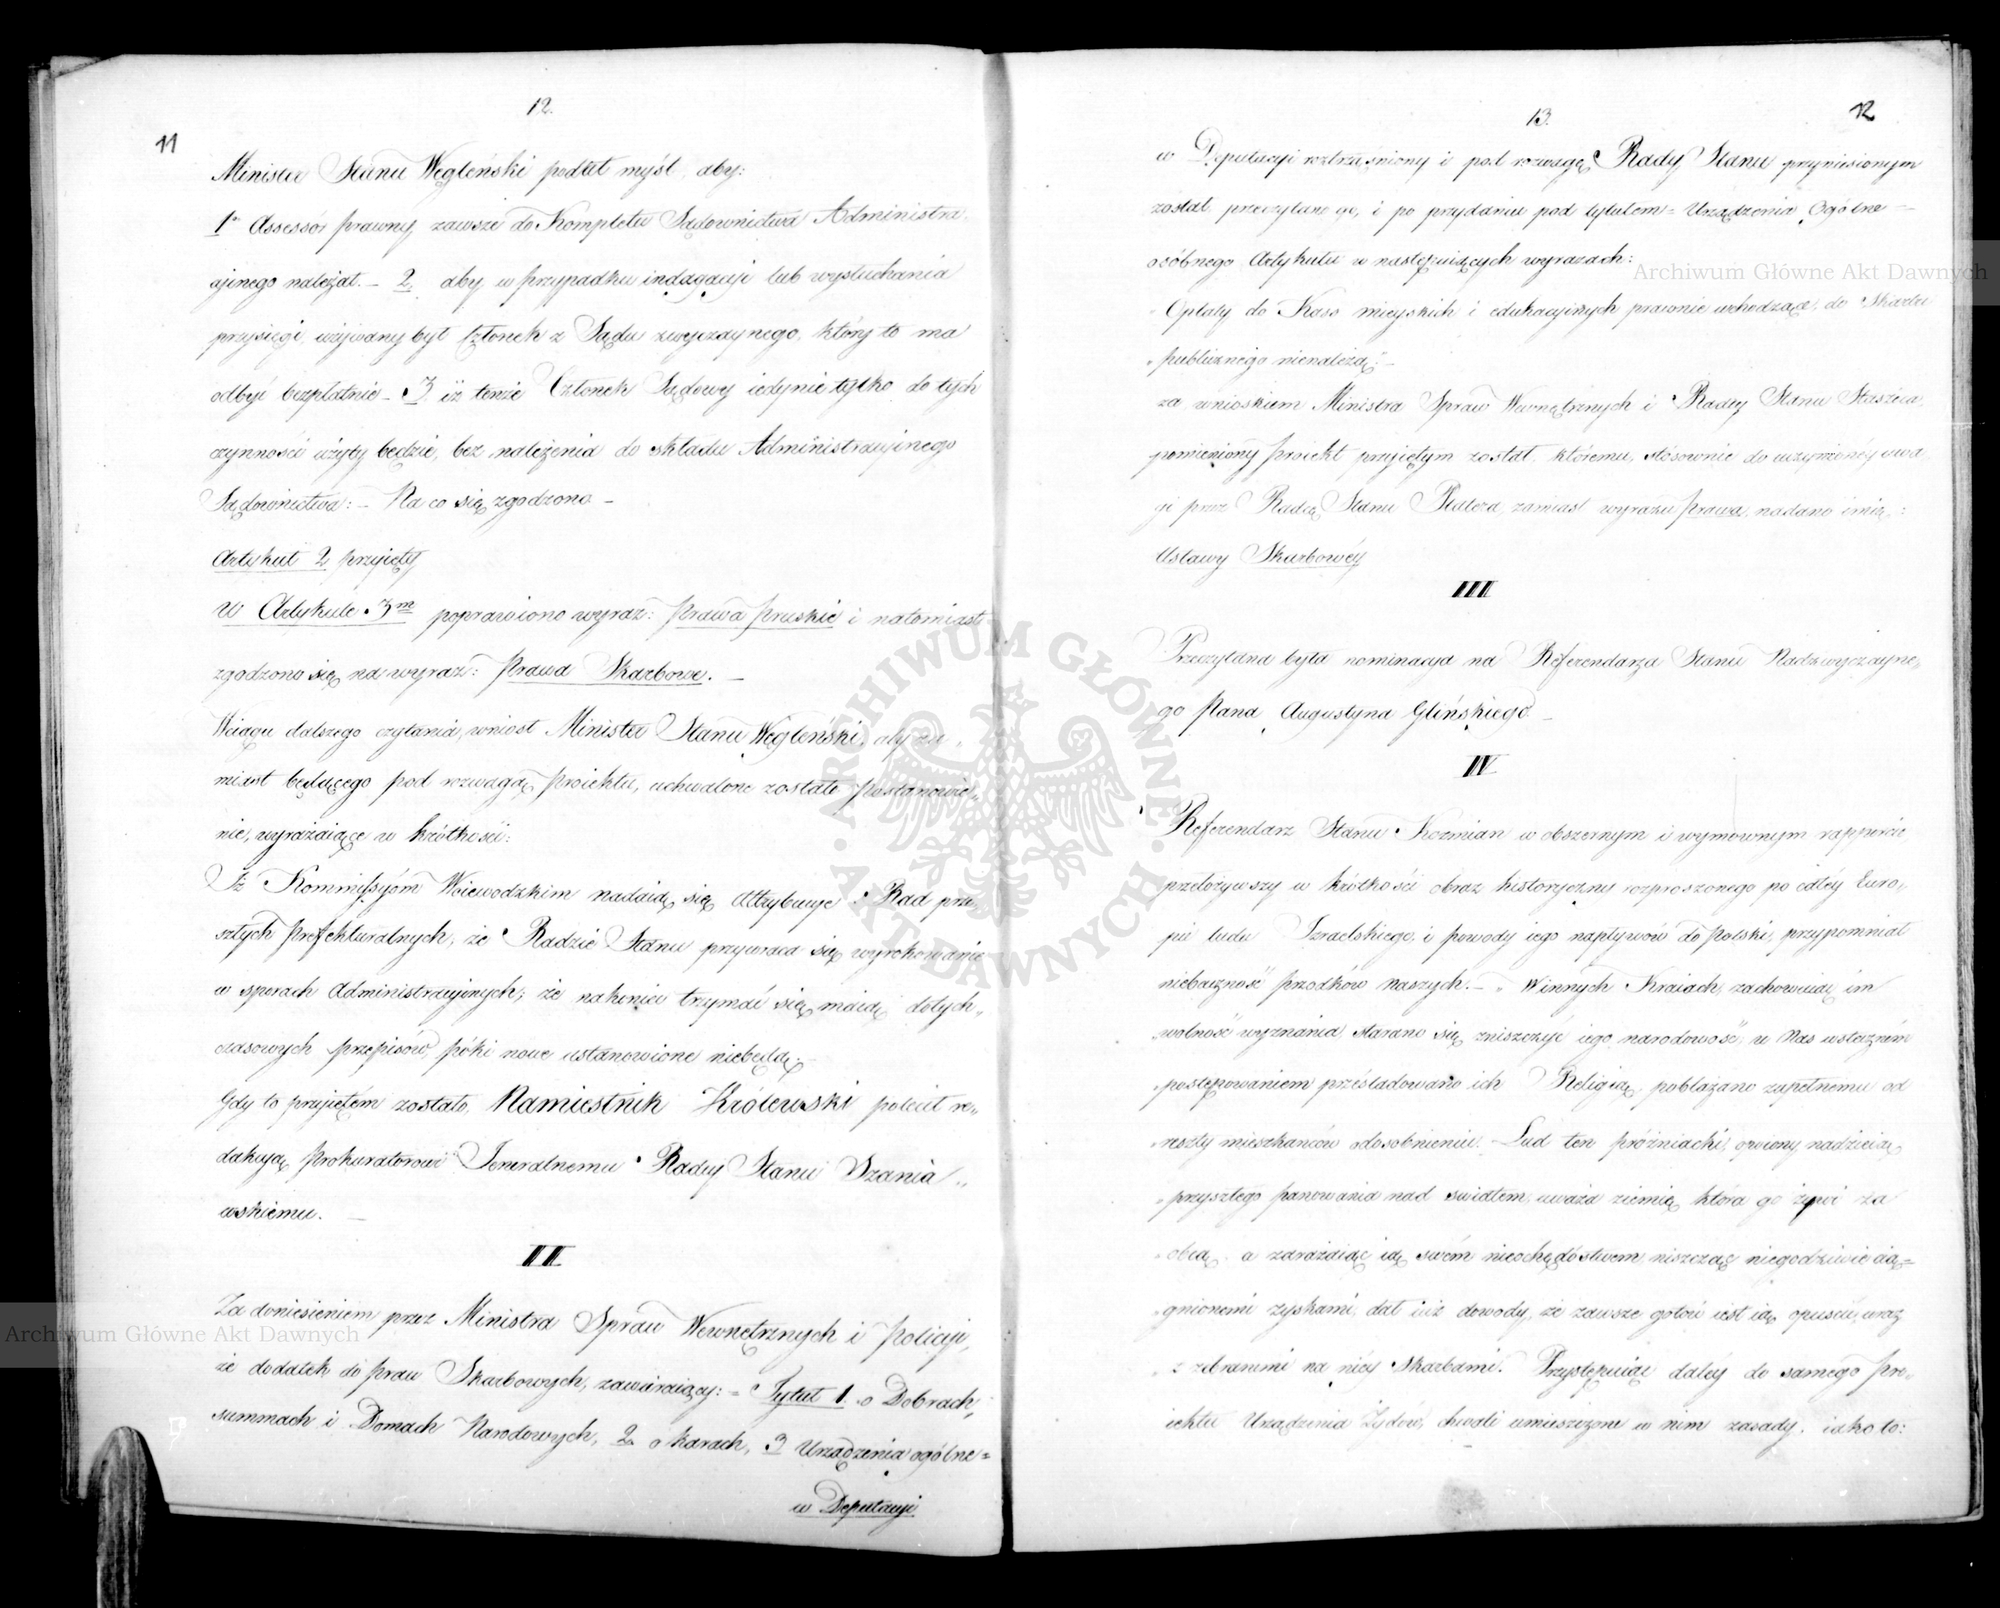 12.
11
Minister Stanu Węgleński poddał myśl, aby:
1° Assessor prawny zawsze do Kompletu Sądownictwa Administra
cyjnego należał. – 2. aby w przypadku indagacyi lub wysłuchania
przysięgi, używany był Członek z Sądu zwyczaynego, który to ma
odbyć bezpłatnie – 3. iż tenże Członek Sądowy iedynie tylko do tych
czynności użyty będzie, bez należenia do składu Administracyinego
Sądownictwa: – Na co się zgodzono –
Artykuł 2 przyięty
W Artykule 3m poprawiono wyraz: prawa pruskie i natomiast
zgodzono się na wyraz: Prawa Skarbowe. –
W ciągu dalszego czytania, wniosł Minister Stanu Węgleński, aby za„
miast będącego pod rozwagą proiektu, uchwalone zostało postanowie„
nie, wyrażaiące w krótkości:
Iż Kommissyóm Woiewodzkim nadaią się Attrybucye Rad prze„
szłych prefekturalnych, że Radzie Stanu przywraca się wyrokowanie
w sporach Administracyinych; że nakoniec trzymać się maią dotych„
czasowych przepisów, póki nowe ustanowione niebędą. –
Gdy to przyiętém zostało, Namiestnik Królewski polecił re„
dakcyą Prokuratorowi Jeneralnemu Radcy Stanu Szania„
wskiemu. –
II
Za doniesieniem przez Ministra Spraw Wewnętrznych i Policyi,
że dodatek do praw Skarbowych, zawieraiący: = Tytuł 1. o Dobrach,
summach i Domach Narodowych, 2. o karach, 3 Urządzenia ogólne =
w Deputacyi
13.
12
w Deputacyi roztrząśniony i pod rozwagę Rady Stanu przyniesionym
został, przeczytano go, i po przydaniu pod tytułem = Urządzenia Ogólne –
osóbnego Artykułu w następuiących wyrazach:
„Opłaty do Kass mieyskich i edukacyinych prawnie wchodzące, do Skarbu
„publicznego nienależą." –
za wnioskiem Ministra Spraw Wewnętrznych i Radcy Stanu Staszica,
pomieniony proiekt przyiętym został, któremu, stósownie do uczynionéy uwa
gi przez Radcę Stanu Platera, zamiast wyrazu prawa, nadano imię:
Ustawy Skarbowéy
III
Przeczytana była nominacya na Referendarza Stanu Nadzwyczayne„
go Pana Augustyna Glińskiego. –
IV
Referendarz Stanu Koźmian w obszernym i wymownym rapporcie
przełożywszy w krótkości obraz historyczny rozproszonego po całéy Euro„
pie ludu Izraelskiego, i powody iego napływów do Polski, przypomniał
niebaczność przodków naszych. – „W innych Kraiach, zachowuiąc im
„wolność wyznania, starano się zniszczyć iego narodowość, u Nas wsteczném
„postępowaniem prześladowano ich Religią, pobłażano zupełnemu od
„reszty mieszkańców odosobnieniu. – Lud ten próżniacki, opoiony nadzieią
„przyszłego panowania nad swiatem, uważa ziemię, która go żywi za
„obcą, a zarażaiąc ią swém nieochędóstwem, niszcząc niegodziwie cią=
„gnionemi zyskami, dał iuż dowody, że zawsze gotów iest ią opuścić, wraz
„z zebranemi na niéy Skarbami. Przystępuiąc daléy do samego pro„
iektu Urządzenia Żydów, chwali umieszczone w nim zasady, iako to:
Archiwum Główne Akt Dawnych
Archiwum Główne Akt Dawnych
ARCHIWUM GŁÓWNE AKT DAWNYCH